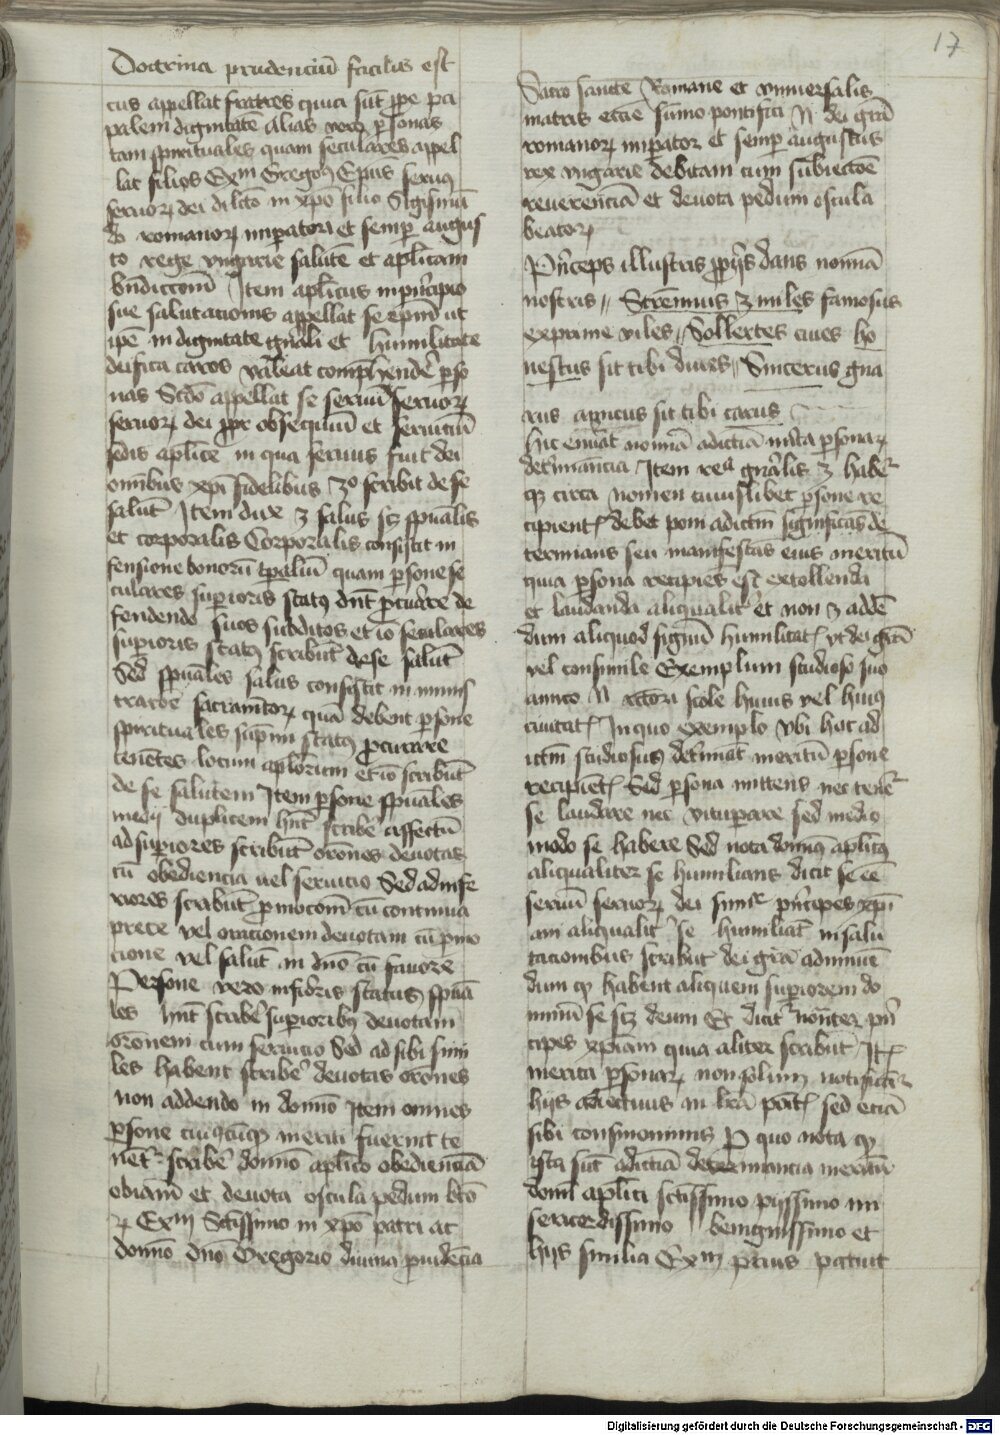 17
Doctrina prudenciū facilis est
cus appellat fratres quia sūt ꝓpe pa
palem dignitatē Alias vero ꝑsonas
tam spirituales quam seculares appel
lat filios Exm Gregoꝰ Ep̄us seruꝰ
seruoꝝ dei dilcō in xp̄o filio Sigismū
do romanoꝝ imꝑatori et semꝑ augus
to rege vngarie salutē et apl̄icam
bn̄diccōm Item apl̄icus in pⁱncipio
sue salutacionis appellat se ep̄m ut
ip̄e in dignitate gn̄ali et humilitate
deifica caros valeat comp̄hendē ꝑso
nas Scd̄o appellat se seruū seruoꝝ
seruoꝝ dei ꝓpt obsequiū et seruiciū
sedis aplice in qua seruus fuit dei
omībus xp̄i fidelibus 3º scribit de se
salutē Item dux ꝫ salus scꝫ sp̄ualis
et corporalis Corporalis consistit in
fensione bonorū tp̄aliū quam ꝑsone se
culares suꝑioris statꝰ dn̄t ꝓcurare de
fendendo suos subditos et iō seculares
suꝑioris statꝰ scribūt de se salutē
Sed sp̄uales salus consistit in minis
tracōe sacramētoꝝ quā debent ꝑsone
spirituales sup̄mi statꝰ ꝓcurare
tenētes locum apl̄orum et iō scribūt
de se salutem Item ꝑsone sp̄uales
medij duplicem hn̄t scribē affectū
ad suꝑiores scribūt orōnes deuotas
cū obediencia uel seruicio Sed ad infe
riores scribūt ꝓmocōm cū continua
prece vel orationem deuotam cū ꝓmo
cione vel salutē in dn̄o cū favore
Persone vero infioris status sp̄ua
les hn̄t scribē suꝑioribꝰ deuotam
orōnem cum seruicio Sed ad sibi simi
les habent scribē deuotas orōnes
non addendo in domīo Item omnes
ꝑsone cuiꝰcūqꝫ meriti fuerint te
nēt scribē domīo aplico obedienciā
obiām et deuota oscula pedum bt̄o
ꝝ Exm Sctissimo in xp̄o patri ac
domīo dn̄o Gregorio diuina ꝓuidēcia
Sacro sancte Romane et vniuersalis
matris eccīe sūmo pontifici N dei grā
romanoꝝ imꝑator et semꝑ augustus
rex vngarie debitam cum subiectōe
reuerenciā et deuota pedum oscula
beatoꝝ
Pⁱnceps illustris ꝓpijs dans nomīa
nostris // Strēnuus ꝫ miles famosus
exprime viles // Sollertes cives ho
nestus sit tibi dives // Sincerus gna
rus amicus sit tibi carus
hic enūat nomīa adictīa mīta ꝑsonaꝝ
det̄minancia Item re^a gn̄alis ꝫ habēt
qꝫ circa nomen cuiuslibet ꝑsone re
cipientꝭ debet poni adictīm significās de
termians seu manifestās eius meritū
quia ꝑsona recipiēs est extollenda
et laudanda aliqualit̄ et non ꝫ addē
dum aliquod signū humilitatꝭ vt dei grā
vel consimile Exemplum studioso suo
amico N rectori scole huius vel huiꝰ
ciuitatꝭ In quo exemplo vbi hoc ad
ictm̄ studiosus det̄minat meritū ꝑsone
recipiētꝭ Sed ꝑsona mittens nec tenēt
se laudare nec vituꝑare sed medio
modo se habere Sed nota domꝰ aplicꝰ
aliqualiter se humilians dicit se eē
seruū seruoꝝ dei simlr̄ pⁱncipes xp̄i
ani aliqualit̄ se humiliāt in salu
tacionibus scribūt dei grā adminē
dum qꝫ habent aliquem suꝑiorem do
minū se scꝫ deum Et dicit̄ nōnter pⁱn
cipes xp̄iani quia aliter scribūt It̄
merita ꝑsonaꝝ non solum notificat̄
hijs adiectiuis in lrā pōitꝭ sed etiā
sibi consinonimis Pro quo nota qꝫ
ista sūt adictīa determinancia meritū
domī apl̄ici sctissimo piissimo mi
sericordissimo benignissimo et
hijs similia Exm prius patuit
Digitalisierung gefördert durch die Deutsche Forschungsgemeinschaft - DFG